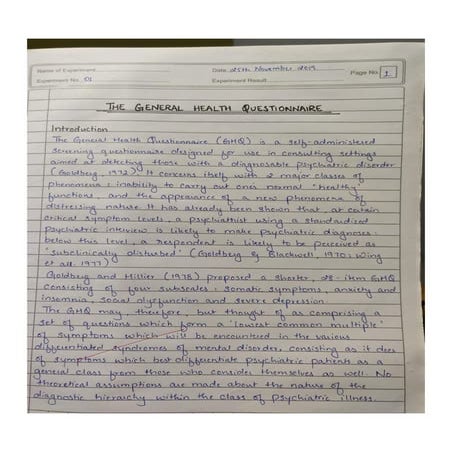 Name of Experiment
Date 25th November 2019
Page No. 1
Experiment No. 01
Experiment Result
THE GENERAL HEALTH QUESTIONNAIRE
Introduction
The General Health Questionnaire (GHQ) is a self-administered
screening questionnaire designed for use in consulting settings
aimed at detecting those with a diagnosable psychiatric disorder
(Goldberg, 1972). It concerns itself with 2 major classes of
phenomena: inability to carry out one's normal "healthy"
functions, and the appearance of a new phenomena of
distressing nature. It has already been shown that, at certain
critical symptom levels, a psychiatrist using a standardised
psychiatric interview is likely to make psychiatric diagnoses:
below this level, a respondent is likely to be perceived as
"subclinically disturbed" (Goldberg & Blackwell, 1970; Wing
et al. 1977)
Goldberg and Hillier (1978) proposed a shorter, 28-item GHQ
consisting of four subscales: somatic symptoms, anxiety and
insomnia, social dysfunction and severe depression.
The GHQ may, therefore, but thought of as comprising a
set of questions which form a 'lowest common multiple'
of symptoms which will be encountered in the various
differentiated syndromes of mental disorder, consisting as it does
of symptoms which best differentiate psychiatric patients as a
general class from those who consider themselves as well. No
theoretical assumptions are made about the nature of the
diagnostic hierarchy within the class of psychiatric illness.